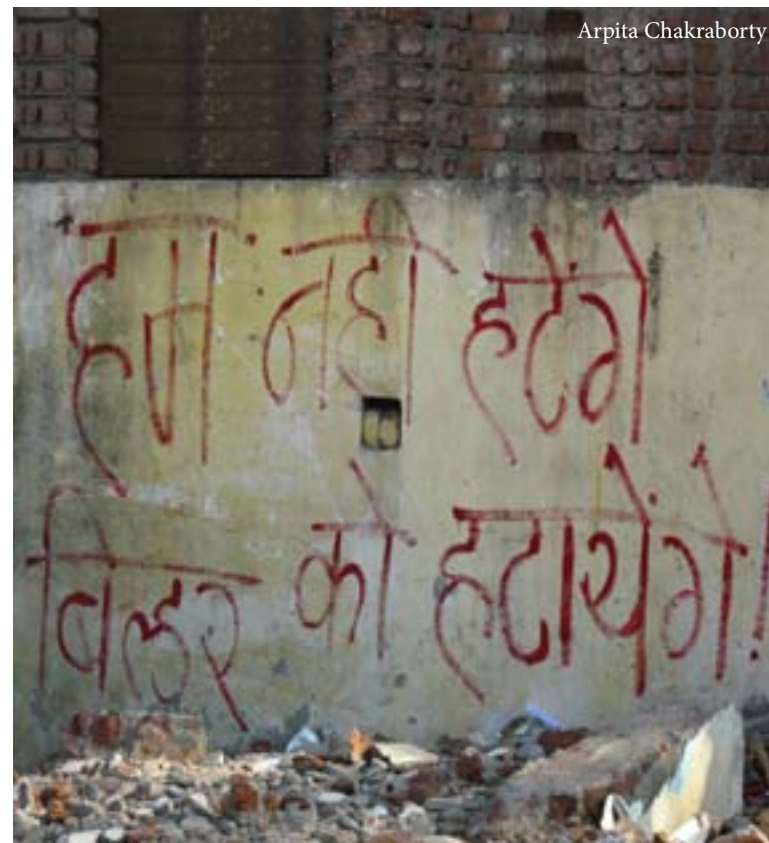 Arpita Chakraborty
हम नही हटेंगे
बिल्डर को हटायेंगे!